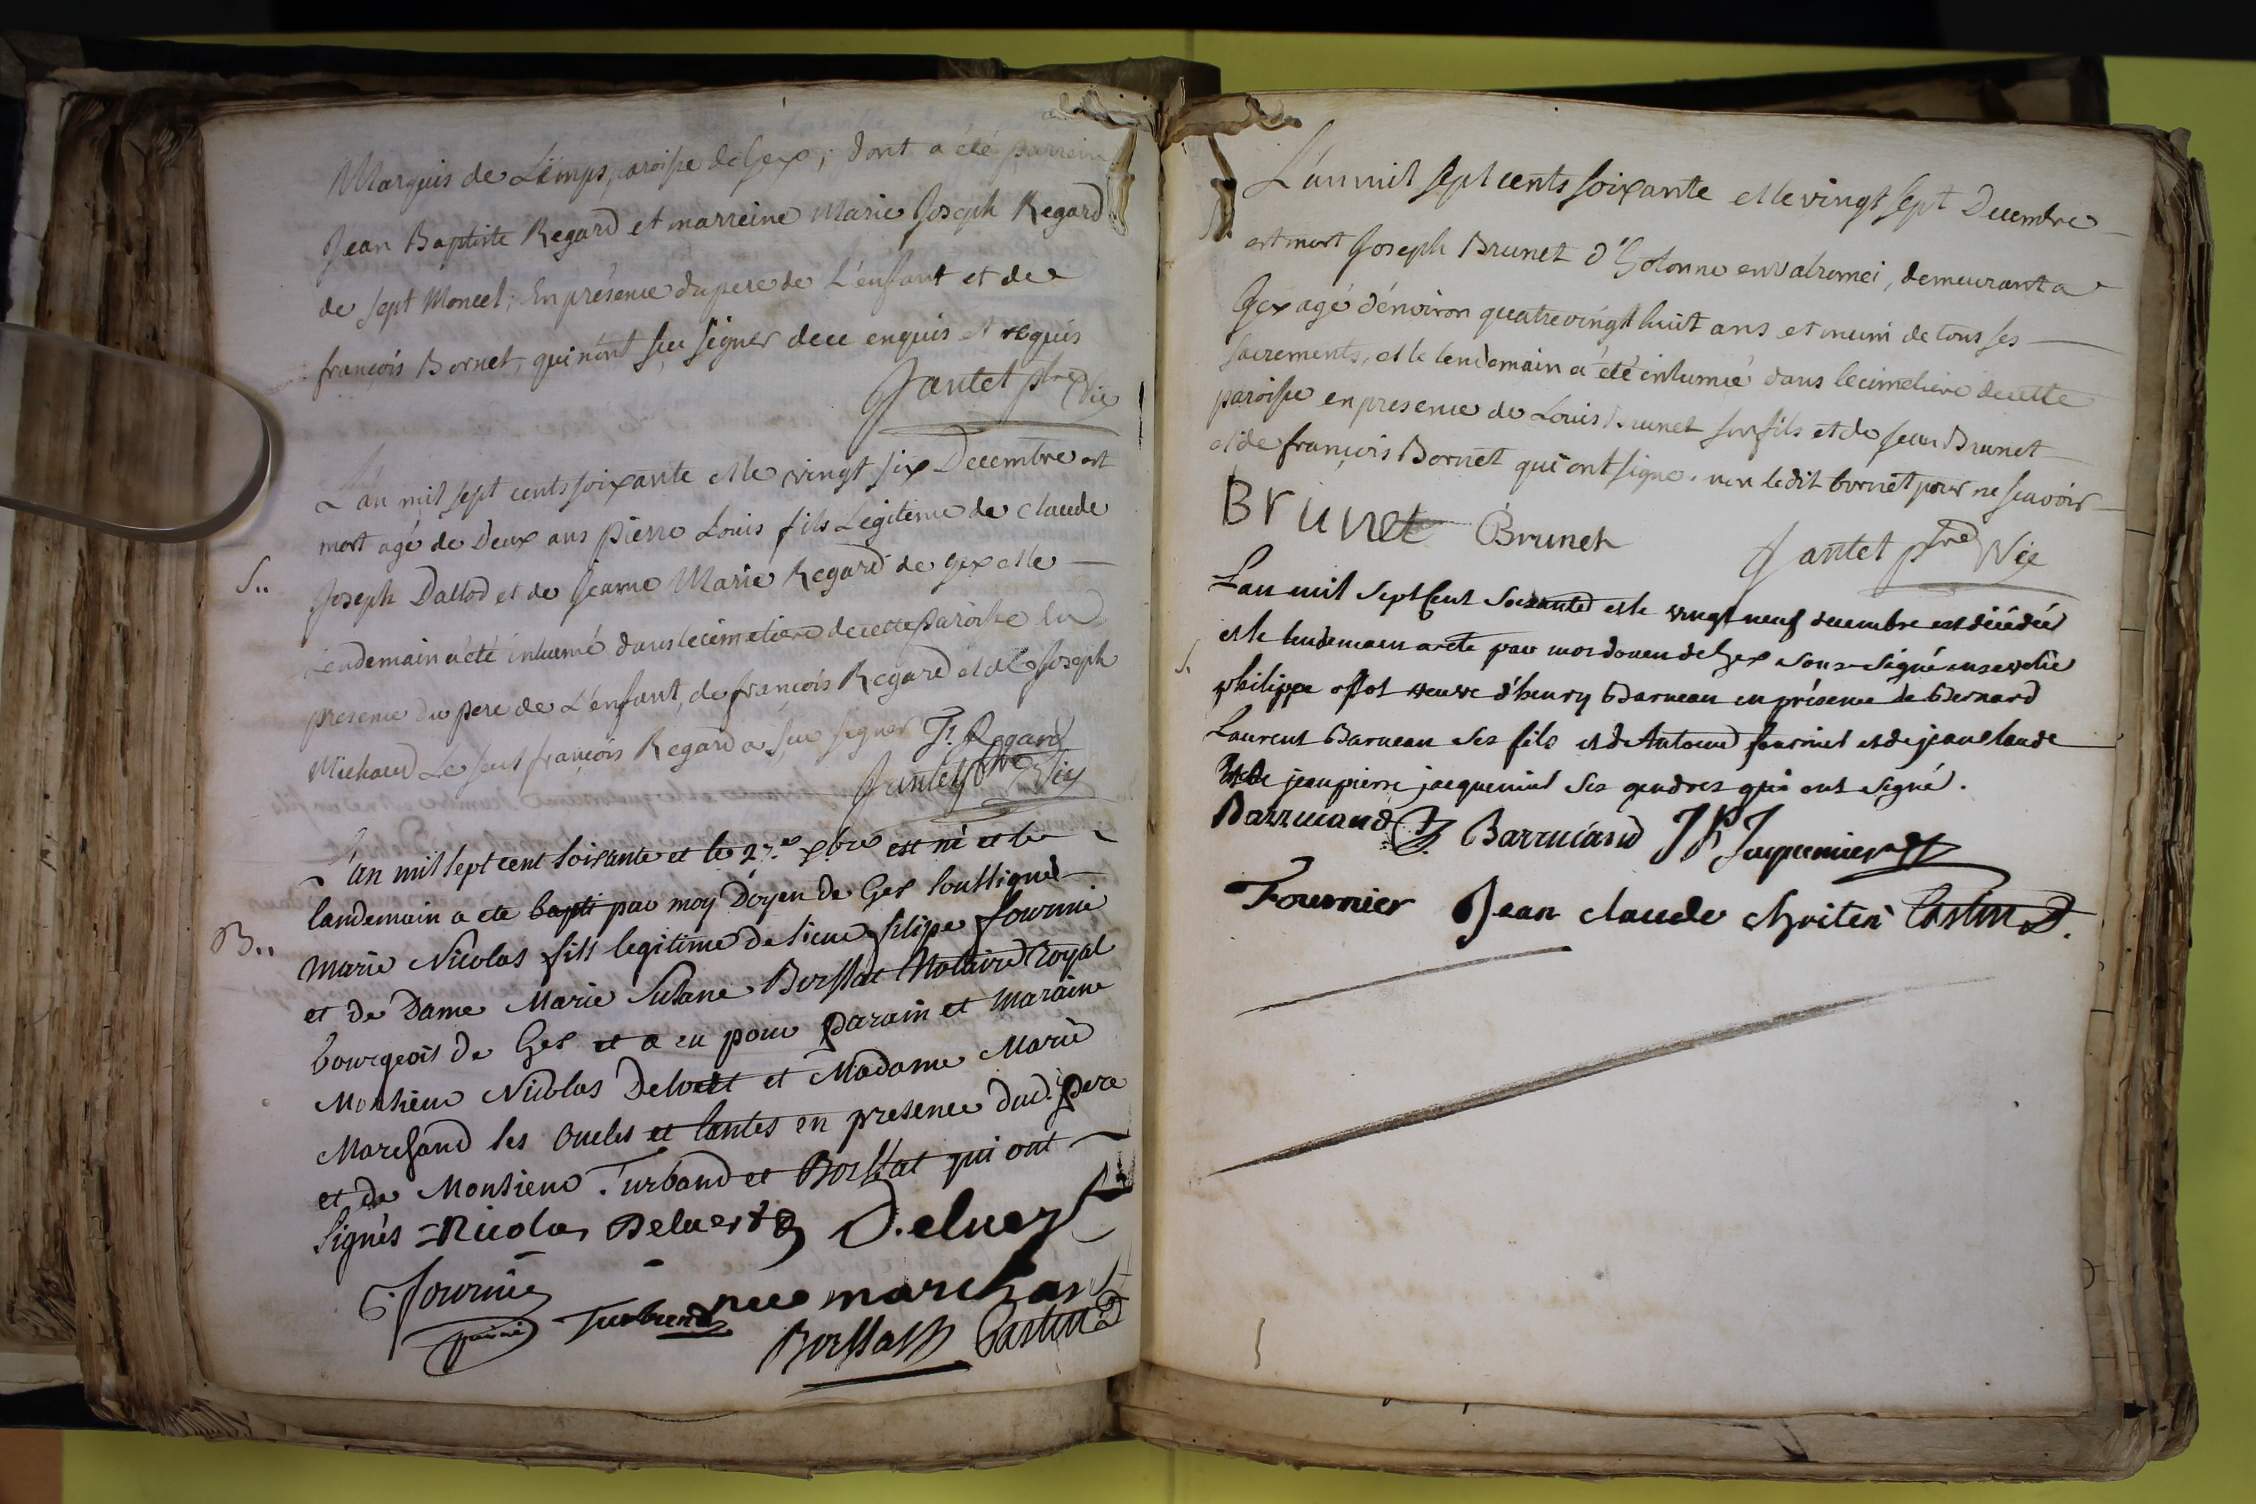 Marquis de Lemps, paroisse de Gex; dont a été parrein
Jean Baptiste Regard et marreine Marie Joseph Regard
de sept Moncel; En présence du pere de L'enfant et de
françois Bornet, qui n'ont sçu signer de ce enquis et requis
Jantet ptre Vic
L'an mil sept cents soixante et le vingt six Decembre est
mort agé de Deux ans Pierre Louis fils Legitime de Claude
S..
Joseph Dallod et de Jeanne Marie Regard de Gex et le
Lendemain a été inhumé dans le cimetiere de cette paroisse en
presence du pere de L'enfant, de françois Regard et de Joseph
Michaud Le seul françois Regard a sçu signer F. Regard
Jantet ptre Vic
L'an mil sept cent soixante et le 27.e xbre est né et le
landemain a ete bapti par moy Doyen de Gex soussigné
B..
Marie Nicolas fils legitime de sieur filipe fournié
et de Dame Marie Susane Borssat Notaire Royal
bourgeois de Gex et a eu pour parain et maraine
Monsieur Nicolas Deluert et Madame Marie
Marchand les Oncles et tantes en presence dud. pere
et de Monsieur Turband et Borssat qui ont
signés Nicolas Deluert Deluert
fournié
née marchant
Borssat Castin D
L'an mil sept cents soixante et le vingt sept Decembre
est mort Joseph Brunet d'Hotonne en valromei, demeurant a
Gex agé d'environ quatrevingt huit ans et muni de tous ses
sacrements, et le lendemain a été inhumé dans le cimetiere de cette
paroisse en presence de Louis Brunet son fils et de Jean Brunet
et de françois Bornet qui ont signé, non ledit bornet pour ne scavoir
Brunet Brunet Jantet ptre Vic
L'an mil sept Cent soixante et le vingt neuf decembre est décédée
et le lendemain a été par moi doyen de Gex sous-signé ensevelie
S.
philippe veuve d'henry Barucan en présence de Bernard
Laurent Barucan ses fils et de Antoine fournié et de jean claude
jean pierre jacquemier ses gendres qui ont signé.
Barrucand Barrucand J P Jaquemier
Fournier Jean claude Castin D.